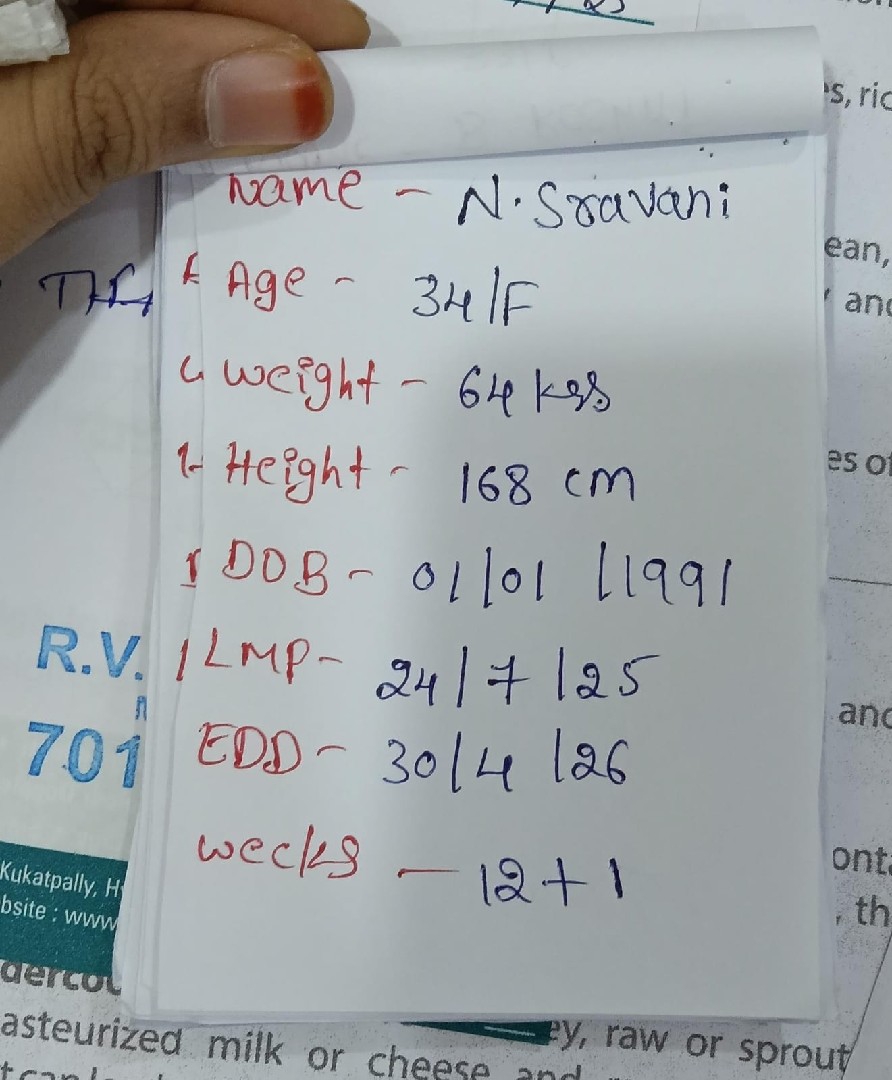 Name - N. Sravani
Age - 34/F
weight - 64 kgs
Height - 168 cm
DOB - 01/01/1991
LMP - 24/7/25
EDD - 30/4/26
weeks - 12+1
R.V.
701
Kukatpally, H
bsite : www
s, ric
ean,
and
es of
and
ont
, th
asteurized milk or cheese and
ey, raw or sprout